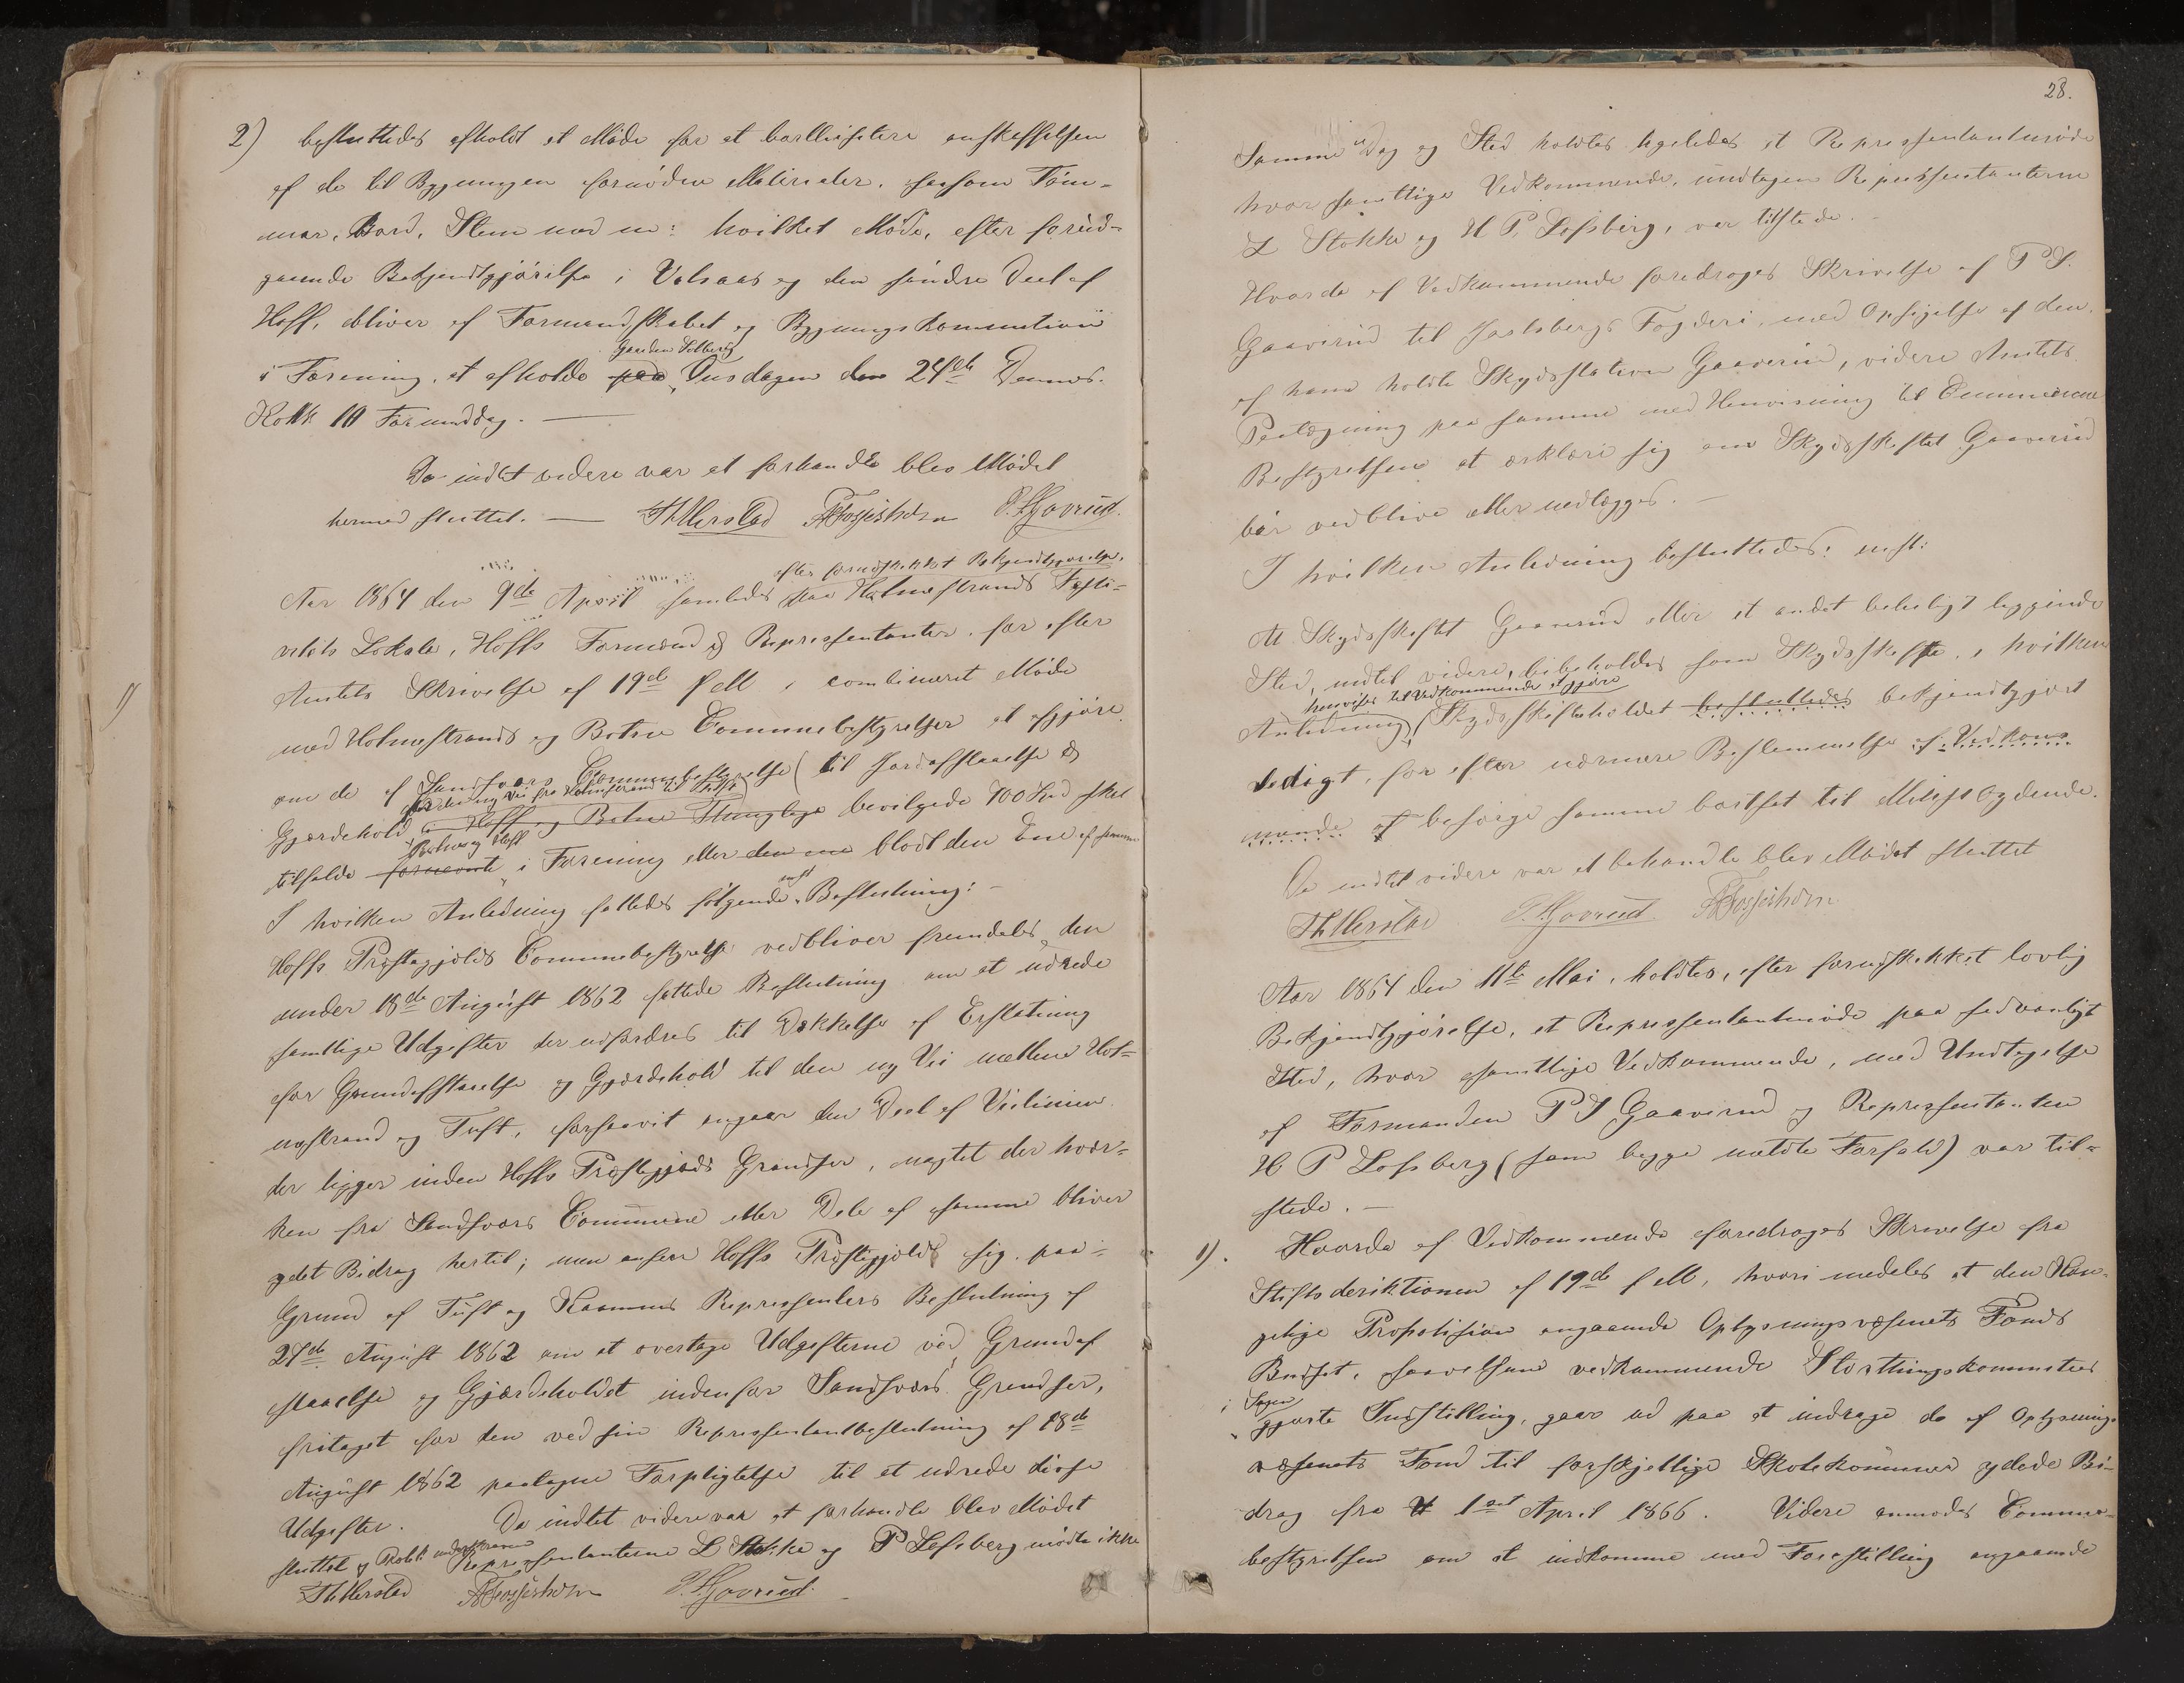 2) besluttedes afholdt et Møde for at bortlicitere anskaffelsen
af de til Bygningen fornødne Materialer, saasom Tøm-
mer, Bord, Steen med m: hvilket Møde, efter forud-
gaaende Bekjendtgjørelse i Valsaas og den søndre Deel af
Hoff, bliver af Formandskabet og Bygningskommitteen
Gaarden Solberg
i Forening, at afholde paa Onsdagen den 24de Dennes
Klokk 10 Formiddag. —
Da indtet videre var at forhandle blev Mødet
hermed sluttet. — P. Gjavrud.
efter forudskikket Bekjendtgjørelse,
Aar 1864 den 9de April samledes paa Holmestrands Festi-
vitets Lokale, Hoffs Formænd og Representanter, for efter
1)
Amtets Skrivelse af 19de f M i combineret Møde
med Holmestrands og Botne Communebestyrelser at afgjøre
om de af Sandsværs Communebestyrelse (til Jordafstaaelse &
for den ny Vei fra Holmestrand til Tufte)
Gjærdehold i Hoff og Botne Thinglage bevilgede 700 Spd skal
Botne og Hoff
tilfalde i Forening eller den ene blodt den Ene af samme
enst
I hvilken Anledning fattedes følgende Beslutning: —
Hoffs Præstegjelds Communebestyrelse vedbliver fremdeles den
under 18de August 1862 fattede Beslutning om at udrede
samtlige Udgifter der udfordres til Dækkelse af Erstatning
for Grundafstaaelse og Gjærdehold til den ny Vei mellem Hol-
mestrand og Tuft, forsaavit angaar den Deel af Veilinien
der ligger inden Hoffs Præstegjælds Grændser, uagtet der hver-
ken fra Sandsværs Commune eller Dele af samme bliver
ydet Bidrag hertil; men anseer Hoffs Præstegjeld sig, paa
Grund af Tuft og Representers Beslutning af
27de August 1862 om at overtage Udgifterne ved Grundaf
staaelse og Gjærdeholdet indenfor Sandsværs Grendser,
fritaget for den ved sin Representantbeslutning af 18de
August 1862 paatagne Forpligtelse til at udrede disse
Udgifter. Da indtet videre var at forhandle blev Mødet
sluttet og Protok underskreven
Representanterne L Stokke og P Lofsberg mødte ikke
P. Gjavrud.
28.
Samme Dag og Sted holdtes ligeledes et Representantmøde
hvor samtlige Vedkommende, undtagen Representanterne
L Stokke og H P. Lofsberg, var tilstede. —
Hvorda af Vedkommende foredroges Skrivelse af P S.
Gaaverud til Jarlsbergs Fogderi, med Opsigelse af den
af ham holdte Skydsstation Gaaverud, videre Amtets
Paategning paa samme med Henvisning til Commune
Bestyrelsen at erklære sig om Skydsskiftet Gaaverud
bør vedblive eller nedlægges. —
I hvilken Anledning besluttedes: enst:
At Skydsskiftet Gaaverud eller et andet beleiligt liggende
Sted, indtil videre, bibeholdes som Skydsskifte, i hvilken
henvises til Vedkommende at gjøre
Anledning Skydsskifteholdet besluttedes bekjendtgjort
ledigt, for efter nærmere Bestemmelse af Vedkom
mende at besørge samme bortsat til Mindstbydende.
Da indtet videre var at behandle blev Mødet sluttet
P. Gjavrud
Aar 1864 den 11te Mai, holdtes, efter forudskikket lovlig
Bekjendtgjørelse, et Representantmøde paa sedvanligt
Sted, hvor samtlige Vedkommende, med Undtagelse
af Formanden P S Gaaverud og Representanten
H P Lofsberg (som begge meldte Forfald) var til-
stede. —
1). Hvorda af Vedkommende foredroges Skrivelse fra
Stiftsdirektionen af 19de f M, hvori meddeles at den Kon-
gelige Proposision angaaende Oplysningsvæsenets Fonds
Budjet, saavelsom vedkommende Storthingskommitees
i Sagen
gjorte Indstilling, gaar ud paa at inddrage de af Oplysnings
væsenets Fond til forskjellige Skolekommuner ydede Bi-
drag fra 1ste April 1866. Videre anmodes Commune-
bestyrelsen om at indkomme med Forestilling angaaende